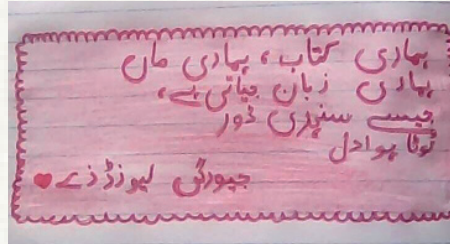 ہماری کتاب، ہماری ماں
ہماری زبان جیاتی ہے،
جیسے سنہری ڈور
ٹوٹا ہوا دل
جیورگی لیوزڈزے